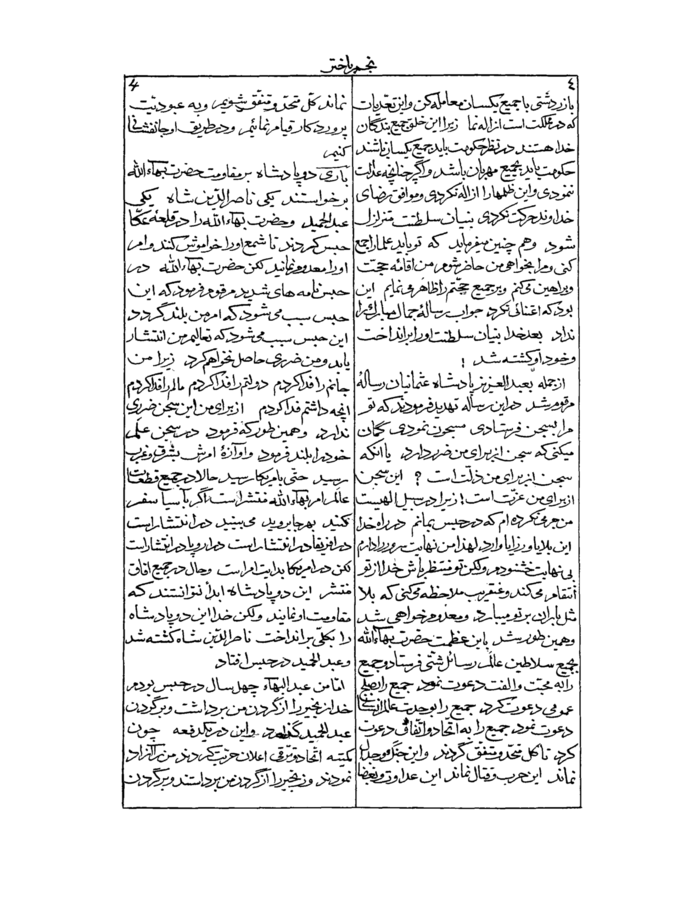 نجم باختر
٤
۴
یا زردشتی با جمیع یکسان معامله کن و این تعدیات
که در مملکت است ازاله نما زیرا این خلق جمیع بندگان
خدا هستند در نظر حکومت باید جمیع یکسان باشند
حکومت باید بجمیع مهربان باشد و اگر چنانچه عدالت
ننمودی و این ظلمها را ازاله نکردی و موافق رضای
خداوند حرکت نکردی بنیان سلطنتت متزلزل
شود و هم چنین میفرماید که تو باید علما را جمع
کنی و مرا بخواهی من حاضر شوم من اقامهٔ حجت
و براهین میکنم و بر جمیع حجتم را ظاهر می نمایم این
بود که اعتنائی نکرد جواب رسالهٔ جمال مبارک را
نداد بعد خدا بنیان سلطنت او را برانداخت
و خود او کشته شد !
از جمله بعبد العزیز پادشاه عثمانیان رسالهٔ
مرقوم شد در این رساله تهدید فرمودند که تو
مرا بسجن فرستادی مسجون نمودی گمان
میکنی که سجن از برای من ضرر دارد یا آنکه
سجن از برای من ذلت است ؟ این سجن
از برای من عزت است ! زیرا در سبیل الهیست
من جرمی نکرده ام که در حبس بمانم در راه خدا
این بلایا و رزایا وارد لهذا من نهایت سرور را دارم
بی نهایت خشنودم ولکن تو منتظر باش خدا از تو
انتقام میکند و عنقریب ملاحظه میکنی که بلا
مثل باران بر تو میبارد و معدوم خواهی شد
و همین طور شد باین عظمت حضرت بهاءالله
بجمیع سلاطین عالم رسائل شتی فرستاد و جمیع
را به محبت و الفت دعوت نمود جمیع را بصلح
عمومی دعوت کرد جمیع را بوحدت عالم انسانی
دعوت نمود جمیع را به اتحاد و اتفاق دعوت
کرد تا کل متحد و متفق گردند و این جنگ و جدال
نماند این حرب و قتال نماند این عداوت و بغضا
نماند کل متحد و متفق شویم و به عبودیت
پروردگار قیام نمائیم و در طریق او جانفشانی
کنیم
باری دو پادشاه بر مقاومت حضرت بهاءالله
برخواستند یکی ناصر الدین شاه یکی
عبد الحمید و حضرت بهاءالله را در قلعه عکا
حبس کردند تا شمع او را خواموش کنند و امر
او را معدوم نمایند لکن حضرت بهاءالله در
حبس نامه های شدید مرقوم فرمود که این
حبس سبب می شود که امر من بلند گردد
این حبس سبب می شود که تعالیم من انتشار
یابد و من ضرری حاصل نخواهم کرد زیرا من
جانم را فدا کردم دولتم را فدا کردم مالم را فدا کردم
آنچه داشتم فدا کردم از برای من این سجن ضرری
ندارد و همین طور که فرمود در سجن علم
خود را بلند فرمود و آوازهٔ امرش بشرق و غرب
رسید حتی بامریکا رسید حالا در جمیع قطعات
عالم امر بهاءالله منتشر است اگر بآسیا سفر
کنید بهر جا بروید می بینید در انتشار است
در افریقا در انتشار است در اروپا در انتشار است
لکن در امریکا بدایت امر است و حال در جمیع آفاق
منتشر این دو پادشاه ابدا نتوانستند که
مقاومت او نمایند ولکن خدا این دو پادشاه
را بکلی برانداخت ناصر الدین شاه کشته شد
و عبد الحمید در حبس افتاد
اما من عبد البهاء چهل سال در حبس بودم
خدا زنجیر را از گردن من برداشت و بر گردن
عبد الحمید گذارد و این در یکدفعه چون
کمیته اتحاد و ترقی اعلان حریت کردند من را آزاد
نمودند و زنجیر را از گردن من برداشتند و بر گردن